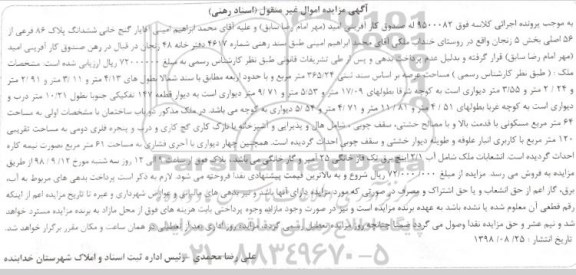 آگهی مزایده اموال غیر منقول (اسناد رهنی)
به موجب پرونده اجرائی کلاسه فوق 9500082 له صندوق کار آفرینی امید (مهر امام رضا سابق) و علیه آقای محمد ابراهیم امینی قابار گنج خانی ششدانگ پلاک 86 فرعی از
56 اصلی بخش 5 زنجان واقع در روستای خنداب ملکی آقای محمد ابراهیم امینی طبق سند رهنی شماره 4617 دفتر خانه 48 زنجان در قبال در رهن صندوق کار آفرینی امید
(مهر امام رضا سابق) قرار گرفته و بدلیل عدم پرداخت بدهی و پس از طی تشریفات قانونی طبق نظر کارشناس رسمی به مبلغ 72000000 ریال ارزیابی شده است. مشخصات
ملک : ( طبق نظر کارشناس رسمی ) مساحت عرصه بر اساس سند ثبتی 365/24 متر مربع و با حدود اربعه مطابق با سند شمالا بطول های 4/13 متر و 3/11 متر و 2/91 متر
و 2/24 متر و 3/55 متر دیواری است به کوچه شرقا بطولهای 17/09 متر و 5/53 متر و 9/71 متر دیواری است به دیوار قطعه 127 تفکیکی جنوبا بطول 10/21 متر درب و
دیواری است به کوچه غربا بطولهای 4/51 متر و 11/81 متر و 4/71 متر و 5/54 دیواری به کوچه می باشد. در ملک مذکور دو باب ساختمان با مشخصات اولی به مساحت
64 متر مربع مسکونی با قدمت بالا و با مصالح خشتی، سقف چوبی شامل هال و پذیرایی و آشپزخانه با نازک کاری گچ کاری و درب و پنجره فلزی دومی به مساحت تقریبی
120 متر مربع با کاربری انبار علوفه و طویله دیوار خشتی، سقف چوبی احداث گردیده است. همچنین چهار دیواری با آجری فشاری به مساحت 61 متر مربع بصورت نیمه کاره
احداث گردیده است. انشعابات ملک شامل آب 1/2 اینچ برق تک فاز خانگی 25 آمپر و گاز خانگی می باشد. پلاک فوق از ساعت 9 الی 12 روز سه شنبه مورخ 98/9/12 از طریق
مزایده به فروش می رسد. مزایده از مبلغ 72/000/000 ریال شروع و به بالاترین قیمت پیشنهادی نقدا فروخته می شود. لازم به ذکر است پرداخت بدهی های مربوط به آب،
برق، گاز اعم از حق انشعاب و یا حق اشتراک و مصرف در صورتی که مورد مزایده دارای آنها باشد و نیز بدهی های مالیاتی و عوارض شهرداری و غیره تا تاریخ مزایده اعم از اینکه
رقم قطعی آن معلوم شده یا نشده باشد به عهده برنده مزایده است و نیز در صورت وجود مازاد وجوه پرداختی بابت هزینه های فوق از محل مازاد به برنده مزایده مسترد خواهد
شد و نیم عشر و حق مزایده نقدا وصول می گردد ضمنا چنانچه روز مزایده تعطیل رسمی گردد مزایده روز اداری بعد از تعطیلی در همان ساعت و مکان مقرر برگزار خواهد شد.
تاریخ انتشار : 1398/08/25
علی رضا محمدی - رئیس اداره ثبت اسناد و املاک شهرستان خدابنده
021-88349670-5